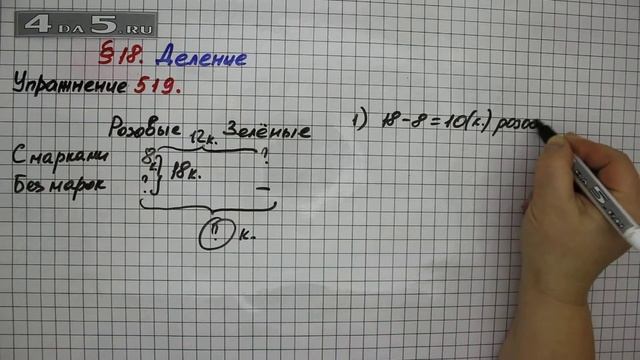 4DA5.RU
§18. Деление
Упражнение 519.
Розовые 12к. Зелёные
С марками 8 ?
18к.
Без марок ? –
? к.
1) 18-8=10(к.) розов
4DA5.RU